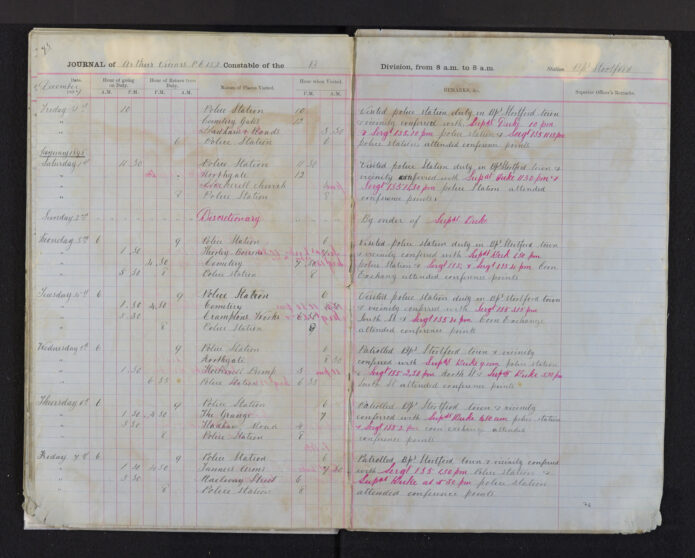 JOURNAL of Arthur PC 152 Constable of the B Division, from 8 a.m. to 8 a.m. Station Bp Stortford
December 1897
Date.
Hour of going on Duty.
Hour of Return from Duty.
Names of Places Visited.
Hour when Visited.
REMARKS, &c.
Superior Officer's Remarks.
A.M. P.M. A.M. P.M. P.M. A.M.
Friday 31st 10 Police Station 10 Visited police station duty in Bp Stortford town
" Cemetery Gate 12 & vicinity conferred with Supdt Duke 10 pm
" & Sergt 135 10 pm police station & Sergt 135
" 6 Police Station 6 police station attended conference points
January 1898
Saturday 1st 11 30 Police Station 11 30 Visited police Station duty in Bp Stortford town &
" Northgate 12 vicinity conferred with Supdt Duke 11 30 pm &
" church Sergt 135 11 30 pm police Station attended
" 8 Police Station 8 conference points
Sunday 2nd Discretionary By order of Supdt Duke
Monday 3rd 6 9 Police Station 6 Visited police station duty in Bp Stortford town
" 1 30 Thorley & vicinity conferred with Supdt Duke 1 30 pm
" 4 30 Cemetery police Station & Sergt 135 & Sergt 135 pm Corn
" 5 30 8 Police Station 8 Exchange attended conference points
Tuesday 4th 6 9 Police Station 6 Visited police station duty in Bp Stortford town
" 1 30 4 30 Cemetery & vicinity conferred with Sergt 135 pm
" 5 30 South St & Sergt 135 pm Corn Exchange
" 8 Police Station 8 attended conference points
Wednesday 5th 6 9 Police Station 6 Patrolled Bp Stortford town & vicinity
" Northgate 8 30 conferred with Supdt Duke 9 am police station
" 1 30 Pump & Sergt 135 2.30 pm North St & Supdt Duke
" 6 35 Police Station 6 35 South St attended conference points
Thursday 6th 6 9 Police Station 6 Patrolled Bp Stortford town & vicinity
" 1 30 4 30 The Grange 7 conferred with Supdt Duke am police station
" 5 30 Hadham Road & Sergt 135 2 pm corn exchange attended
" 8 Police Station 8 conference points
Friday 7th 6 9 Police Station 6 Patrolled Bp Stortford town & vicinity conferred
" 1 30 4 30 Tanners Arms 7 30 with Sergt 135 1.30 pm Police station &
" 5 30 Railway Street 6 Supdt Duke at 5.50 pm police station
" 8 Police Station 8 attended conference points